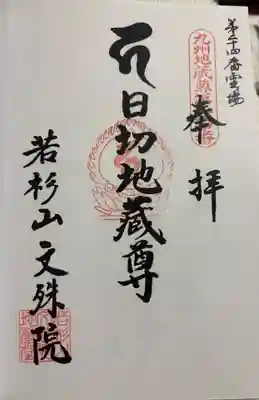 第二十四番霊場
九州地蔵尊
奉拝
日切地藏尊
若杉山 文殊院